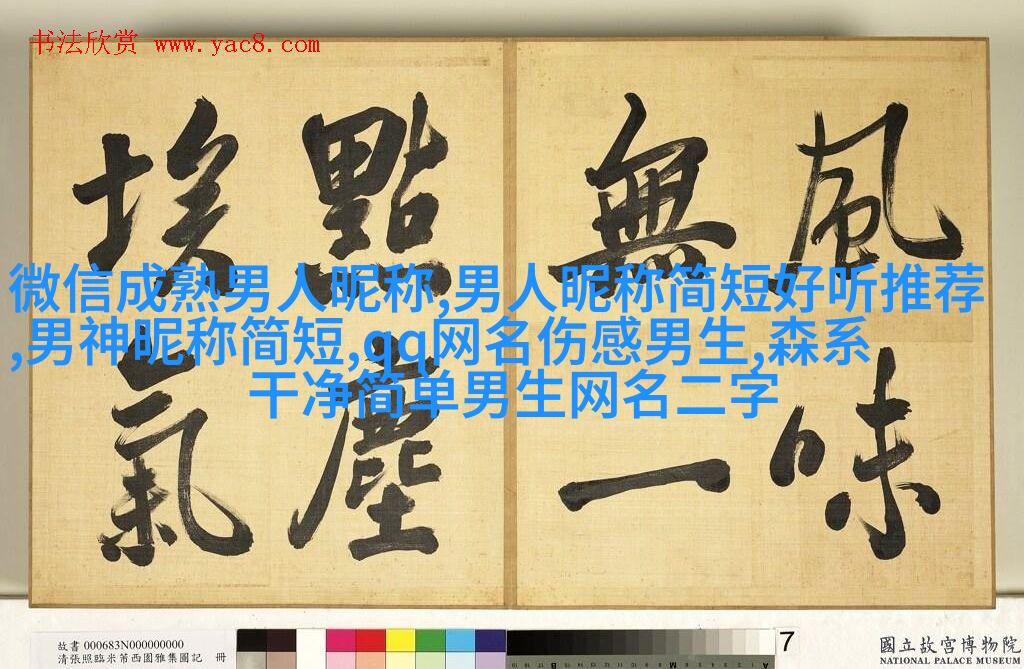 书法欣赏 www.yac8.com
風味
無一
點塵
埃氣
微信成熟男人昵称,男人昵称简短好听推荐
,男神昵称简短,qq网名伤感男生,森系
干净简单男生网名二字
故書 000683N000000000
清張照臨米芾西園雅集圖記 冊
7
國立故宮博物院
NATIONAL PALACE MUSEUM